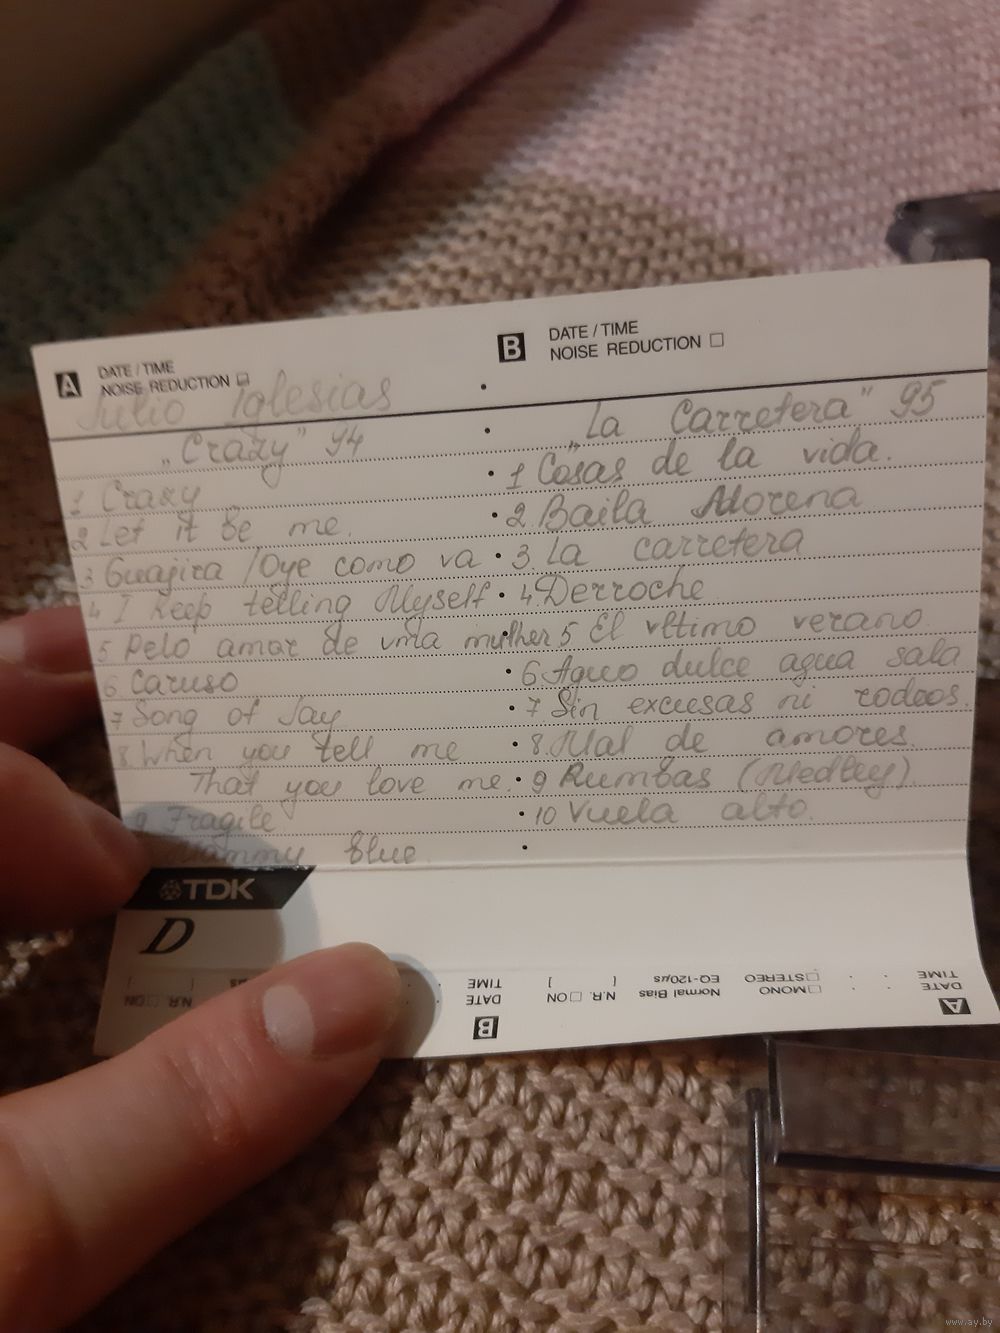 A DATE / TIME
NOISE REDUCTION
Julio Iglesias
„Crazy” 94
1 Crazy
2 Let it be me.
3 Guajira / Oye como va
4 I Keep telling Myself
5 Pelo amor de uma mulher
6 Caruso
7 Song of Jay
8. When you tell me
That you love me.
9 Fragile
Mammy blue
B DATE / TIME
NOISE REDUCTION
„La Carretera” 95
1 Cosas de la vida.
2. Baila Morena
3. La carretera
4. Derroche
5 El vltimo verano.
6 Aguo dulce agua sala
7. Sin excusas ni rodeos.
8. Mal de amores.
9 Rumbas (Medley).
10 Vuela alto.
TDK
D
A
DATE
TIME
MONO
STEREO
Normal Bias
EQ-120µs
N.R. ON [ ]
B
DATE
TIME
µs
N.R. ON [
www.ay.by